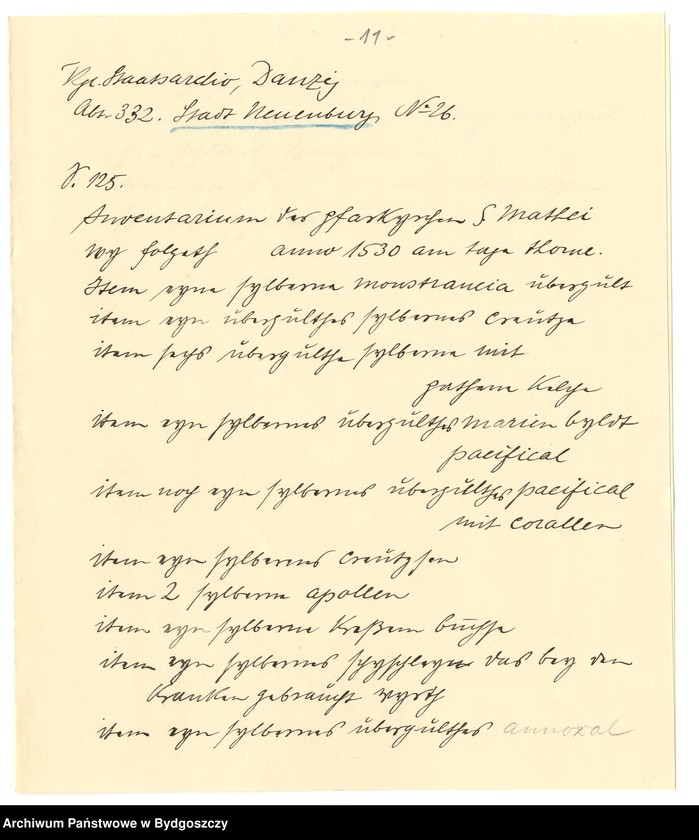 -11-
Kgl. Staatsarchiv, Danzig
Abt. 332. Stadt Neuenburg No 26.
S. 125.
Inventarium der pfarkyrchen S Mathei
wy folgeth anno 1530 am tage thome.
Item eyne sylberne monstrancia übergült
item eyn übergülthes sylbernes creutze
item sechs übergülthe sylberne mit
pathene Kelche
item eyn sylbernes übergülthes marien byldt
pacifical
item noch eyn sylbernes übergülthes pacifical
mit corallen
item eyn sylbernes creutzhen
item 2 sylberne apollen
item eyn sylberne Kreßem büchse
item eyn sylbernes das bey den
Kranken gebraucht wyrth
item eyn sylbernes übergülthes
Archiwum Państwowe w Bydgoszczy